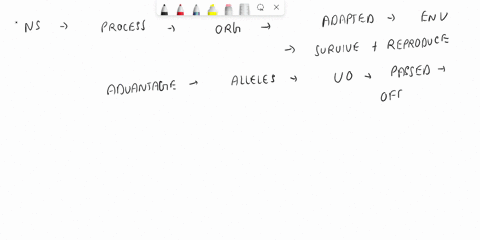 · NS → PROCESS → ORG → ADAPTED → ENV
→ SURVIVE + REPRODUCE
ADVANTAGE → ALLELES → UO → PASSED →
OFF